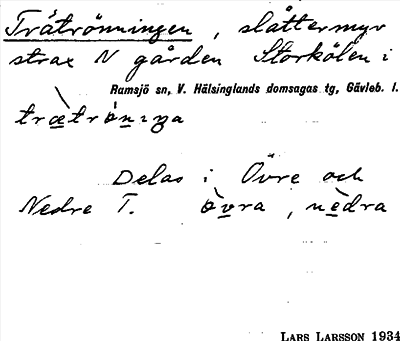 Trätrönningen, slåttermyr
strax N gården Storkölen i
Ramsjö sn, V. Hälsinglands domsagas tg, Gävleb. l.
Delas i Övre och
Nedre T. òvra, nèdra
LARS LARSSON 1934